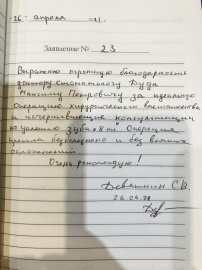 "26" апреля
Заявление № 23
Выражаю огромную благодарность
доктору-стоматологу Дуда
Максиму Петровичу за идеальную
операцию хирургического вмешательства
и исчерпывающие консультации
по удалению зуба. Операция
прошла безболезненно и без всяких
осложнений.
Очень рекомендую!
Девяткин С.В.
26.04.